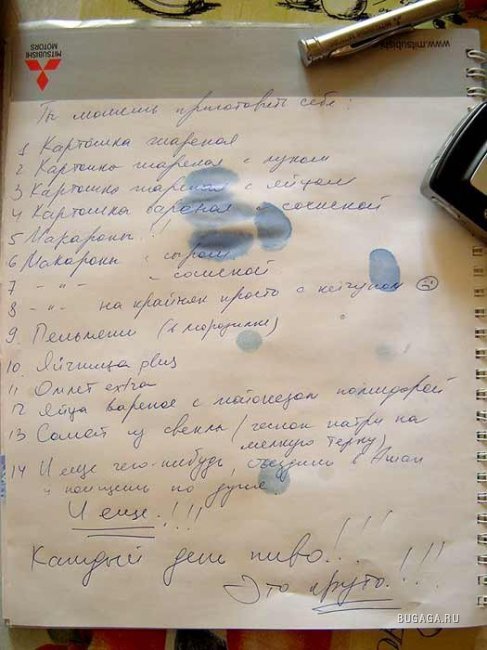 MITSUBISHI
MOTORS
www.mitsubishi
Ты можешь приготовить себе:
1 Картошка жареная
2 Картошка жареная с луком
3 Картошка жареная с яйцом
4 Картошка вареная с сосиской
5 Макароны!!
6 Макароны с сыром
7 - " - - сосиской
8 - " - на крайняк просто с кетчупом
9. Пельмени (в морозилке)
10. Яичница plus
11 Омлет extra
12 Яйца вареное с майонезом помидорой
13 Салат из свеклы (чеснок натри на
мелкую терку)
14 И еще чего-нибудь, съездиш в Ашан
и поищешь по душе
И еще!!!
Каждый день пиво!!!
Это круто!!!
BUGAGA.RU